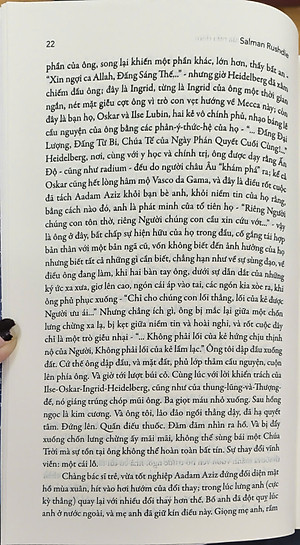 22
Salman Rushdie
phần của ông, song lại khiến một phần khác, lớn hơn, thấy bất an -
"Xin ngợi ca Allah, Đấng Sáng Thế..." - nhưng giờ Heidelberg đã xâm
chiếm đầu ông; đây là Ingrid, từng là Ingrid của ông một thời gian
ngắn, nét mặt giễu cợt ông vì trò con vẹt hướng về Mecca này; ở
đây là bạn họ, Oskar và Ilse Lubin, hai kẻ vô chính phủ, nhạo báng lễ
cầu nguyện của ông bằng các phản-ý-thức-hệ của họ - "... Đấng Đại
Lượng, Đấng Từ Bi, Chúa Tể của Ngày Phán Quyết Cuối Cùng!..." -
Heidelberg, nơi, cùng với y học và chính trị, ông được dạy rằng Ấn
Độ - cũng như radium - đều do người châu Âu "khám phá" ra; kể cả
Oskar cũng hết lòng hâm mộ Vasco da Gama, và đây là điều rốt cuộc
đã tách Aadam Aziz khỏi bạn bè anh, khỏi niềm tin của họ rằng,
bằng cách nào đó, anh là phát minh của tổ tiên họ - "Riêng Người
chúng con tôn thờ, riêng Người chúng con cầu xin cứu vớt..." - vậy
là ông ở đây, bất chấp sự hiện hữu của họ trong đầu, cố gắng tái hợp
bản thân với một bản ngã cũ, vốn không biết đến ảnh hưởng của họ
nhưng biết tất cả những gì cần biết, chẳng hạn như về sự sùng đạo, về
điều ông đang làm, khi hai bàn tay ông, dưới sự dẫn dắt của những
ký ức xa xưa, giơ lên cao, ngón cái áp vào tai, các ngón kia xòe ra, khi
ông phủ phục xuống - "Chỉ cho chúng con lối thẳng, lối của kẻ được
Người ưu ái..." Nhưng chẳng ích gì, ông bị mắc lại giữa một chốn
lưng chừng xa lạ, bị kẹt giữa niềm tin và hoài nghi, và rốt cuộc đây
chỉ là một trò giễu nhại - "... Không phải lối của kẻ hứng chịu thịnh
nộ của Người, Không phải lối của kẻ lầm lạc." Ông tôi dập đầu xuống
đất. Cứ thế ông dập đầu, và mặt đất, phủ lớp thảm cầu nguyện, cuộn
lên phía ông. Và giờ tới lượt búi cỏ. Cùng lúc với lời khiển trách của
Ilse-Oskar-Ingrid-Heidelberg, cũng như của thung-lũng-và-Thượng-
đế, nó giáng trúng chóp mũi ông. Ba giọt máu nhỏ xuống. Sau hồng
ngọc là kim cương. Và ông tôi, lảo đảo ngồi thẳng dậy, đã hạ quyết
tâm. Đứng lên. Quấn điếu thuốc. Đăm đăm nhìn ra hồ. Và bị đẩy
xuống chốn lưng chừng ấy mãi mãi, không thể sùng bái một Chúa
Trời mà sự tồn tại ông không thể hoàn toàn bất tín. Sự thay đổi vĩnh
viễn: một cái lỗ.
Chàng bác sĩ trẻ, vừa tốt nghiệp Aadam Aziz đứng đối diện mặt
hồ mùa xuân, hít vào hơi hướm của đổi thay; trong lúc lưng anh (cực
kỳ thẳng) quay lại với nhiều đổi thay hơn thế. Bố anh đã đột quỵ lúc
anh ở nước ngoài, và mẹ anh đã giữ kín điều này. Giọng mẹ anh, rầm